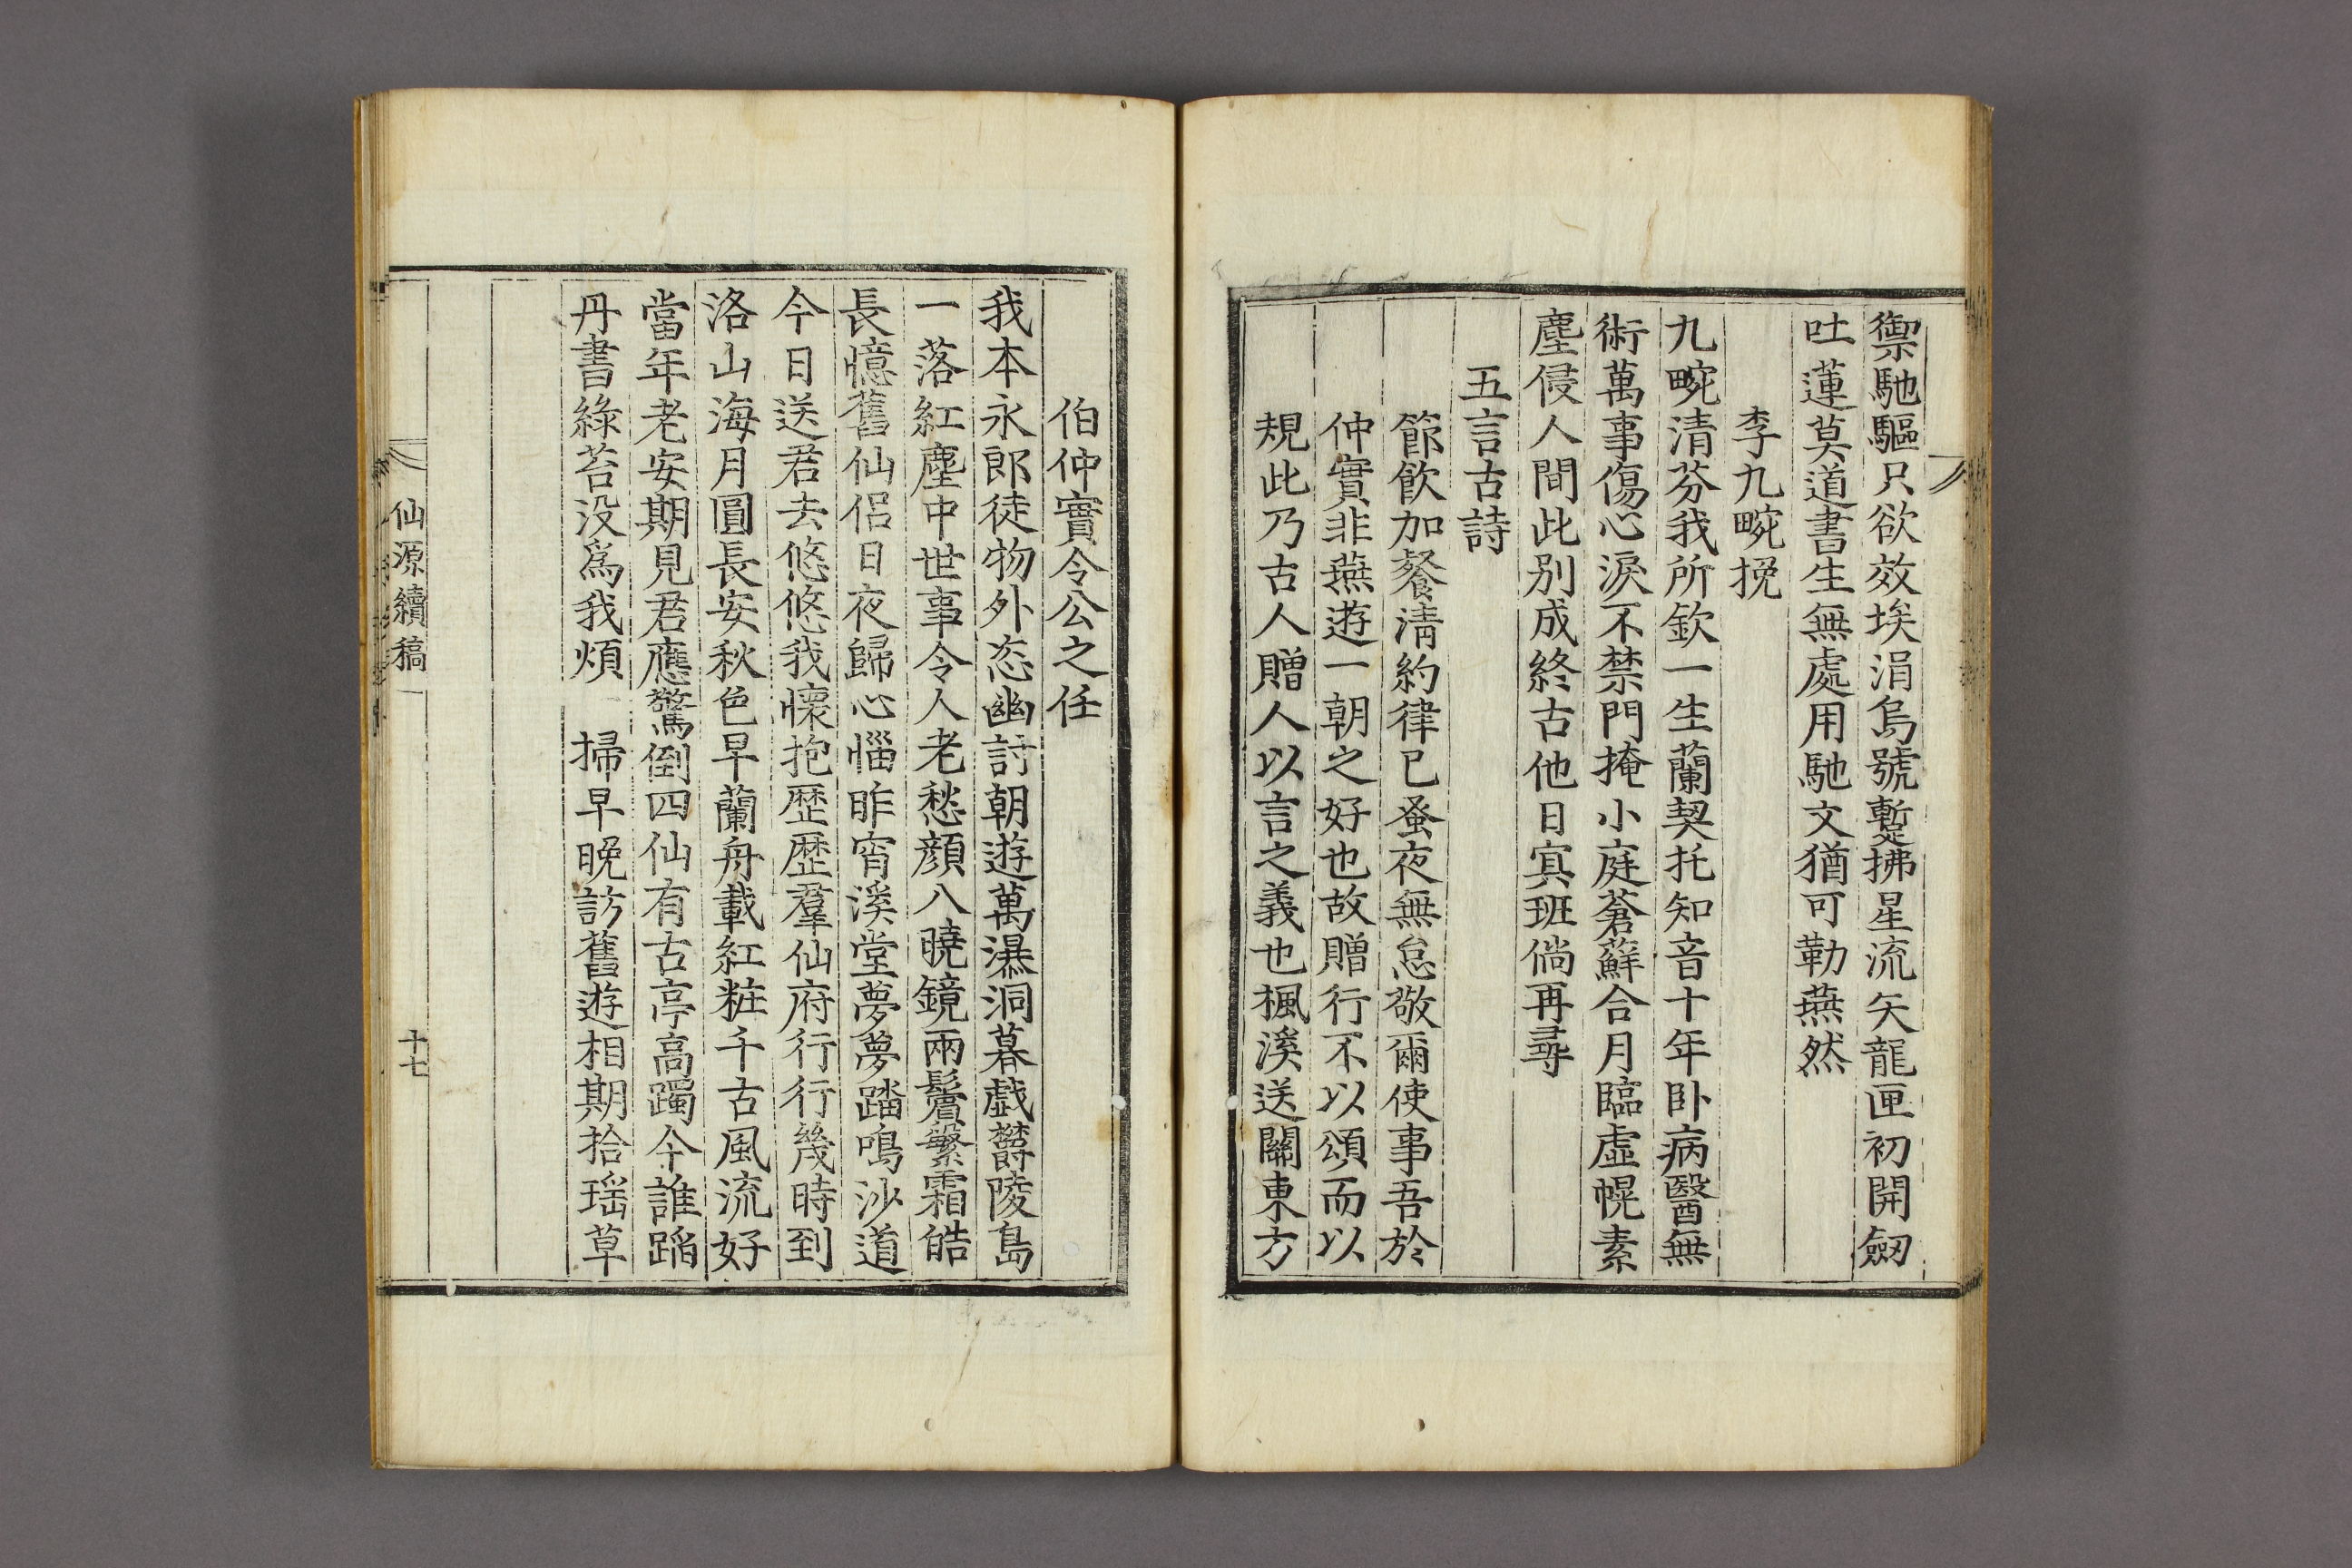 禦馳驅只欲效埃涓烏號蹔拂星流矢龍匣初開劒
吐蓮莫道書生無處用馳文猶可勒燕然
李九畹挽
九畹清芬我所欽一生蘭契托知音十年卧病醫無
術萬事傷心淚不禁門掩小庭蒼蘚合月臨虛幌素
塵侵人間此别成終古他日㝠班倘再尋
五言古詩
節飲加餐清約律已蚤夜無怠敬爾使事吾於
仲實非燕遊一朝之好也故贈行不以頌而以
規此乃古人贈人以言之義也楓溪送關東方
伯仲實令公之任
我本永郎徒物外恣幽討朝遊萬瀑洞暮戱欝陵島
一落紅塵中世事令人老愁顔八曉鏡兩鬢繁霜皓
長憶舊仙侣日夜歸心惱昨宵溪堂夢夢踏鳴沙道
今日送君去悠悠我懷抱歷歷羣仙府行行幾時到
洛山海月圓長安秋色早蘭舟載紅粧千古風流好
當年老安期見君應驚倒四仙有古亭高躅今誰蹈
丹書綠苔没爲我煩 掃早晚訪舊遊相期拾瑤草
仙源續稿 十七